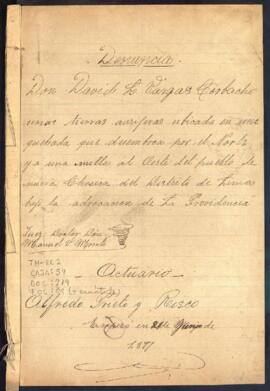 Denuncia
Don David L. Vargas Corbacho
unas tierras auriferas ubicada en una
quebrada que desemboca por el Norte
y a una milla al Oeste del pueblo de
nueva Chosica del Distrito de Lima
bajo la advocacion de La Providencia
Juez Doctor Don
Manuel
TM-EE2
CAJA: 59
DOC: 719
FOL: 31
Actuario
Alfredo Prieto y Risco
Empezó en 21 Junio de
1897